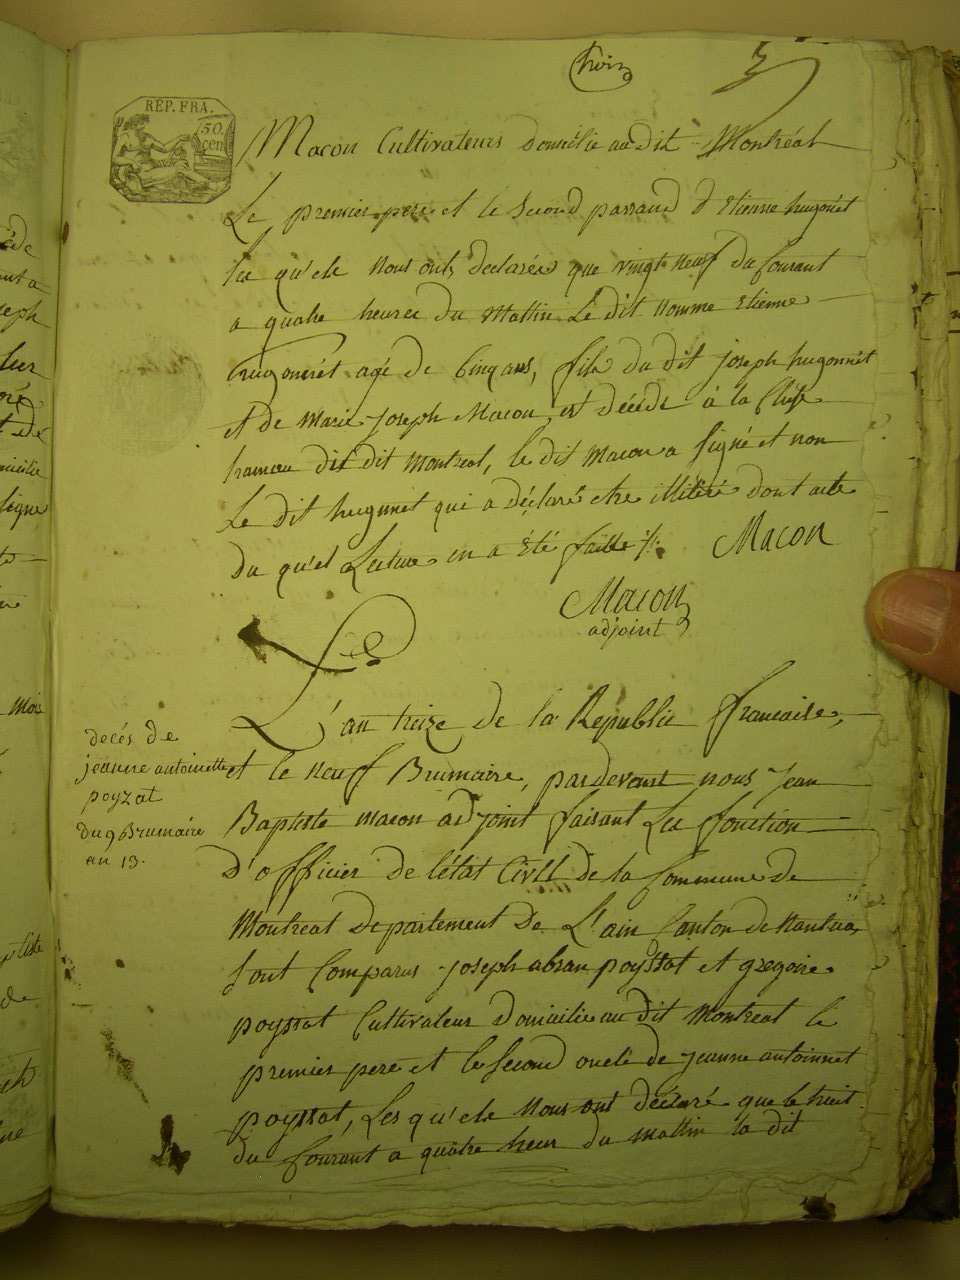 trois
3
REP. FRA.
50.
cen
Macon Cultivateurs domicilie au dit Montréal
Le premier pere et le Second parrand d'Etienne hugonet
les qu'els Nous onts declarée que vingt neuf du Courant
a quatre heures du Mattin Le dit Nomme Etienne
hugonnét agé de Cinq ans, fils du dit joseph hugonnét
et de Marie joseph Macon, est décédé à la Cluse
hameau dudit dit Montreal, le dit Macon a Signé et non
Le dit hugonet qui a déclaré etre illitéré dont acte
du qu'el Lecture en a Eté faitte /.
Macon
Macon
adjoint
decés de
jeanne antoinette
poyzat
du 9 Brumaire
an 13.
L'an treize de la Republic francaise,
et le neuf Brumaire, pardevant nous Jean
Baptiste macon adjoint faisant Les fonction
D'officier de l'état Civil de la Commune de
Montreal departement de L'ain Canton de Nantua,
Sont Comparus joseph abran poyssat et gregoire
poyssat Cultivateur Domicilie au dit Montreal le
premier pere et le Second oncle de jeanne antoinnet
poyssat, Les qu'els Nous ont déclaré que le huit
du Courant a quatre heur du mattin la dit